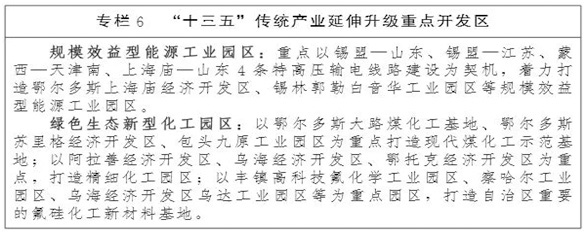 专栏6 “十三五”传统产业延伸升级重点开发区
规模效益型能源工业园区：重点以锡盟—山东、锡盟—江苏、蒙
西—天津南、上海庙—山东4条特高压输电线路建设为契机，着力打
造鄂尔多斯上海庙经济开发区、锡林郭勒白音华工业园区等规模效益
型能源工业园区。
绿色生态新型化工园区：以鄂尔多斯大路煤化工基地、鄂尔多斯
苏里格经济开发区、包头九原工业园区为重点打造现代煤化工示范基
地；以阿拉善经济开发区、乌海经济开发区、鄂托克经济开发区为重
点，打造精细化工园区；以丰镇高科技氟化学工业园区、察哈尔工业
园区、乌海经济开发区乌达工业园区等为重点园区，打造自治区重要
的氟硅化工新材料基地。